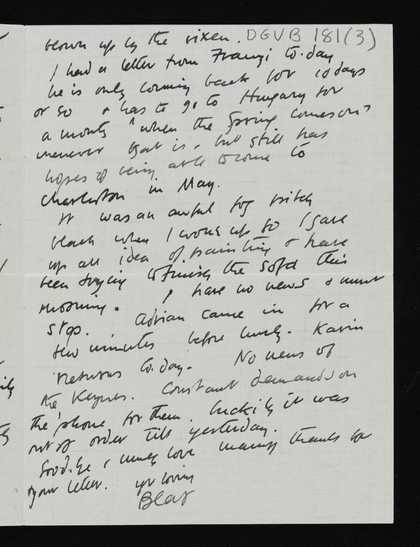 blown up by the vixen. DGVB 181(3)
I had a letter from Franzi to-day
he is only coming back for 10 days
or so & has to go to Hungary for
a month "when the spring comes on"
whenever that is, but still has
hopes of being able to come to
Charleston in May.
It was an awful fog pitch
black when I woke up so I gave
up all idea of painting & have
been trying to finish the sofa this
morning. I have no news & must
stop. Adrian came in for a
few minutes before lunch. Karin
returns to-day. No news of
the Keynes. Constant demands on
the 'phone for them. luckily it was
out of order till yesterday.
Goodbye & much love many thanks for
your letter. yr loving